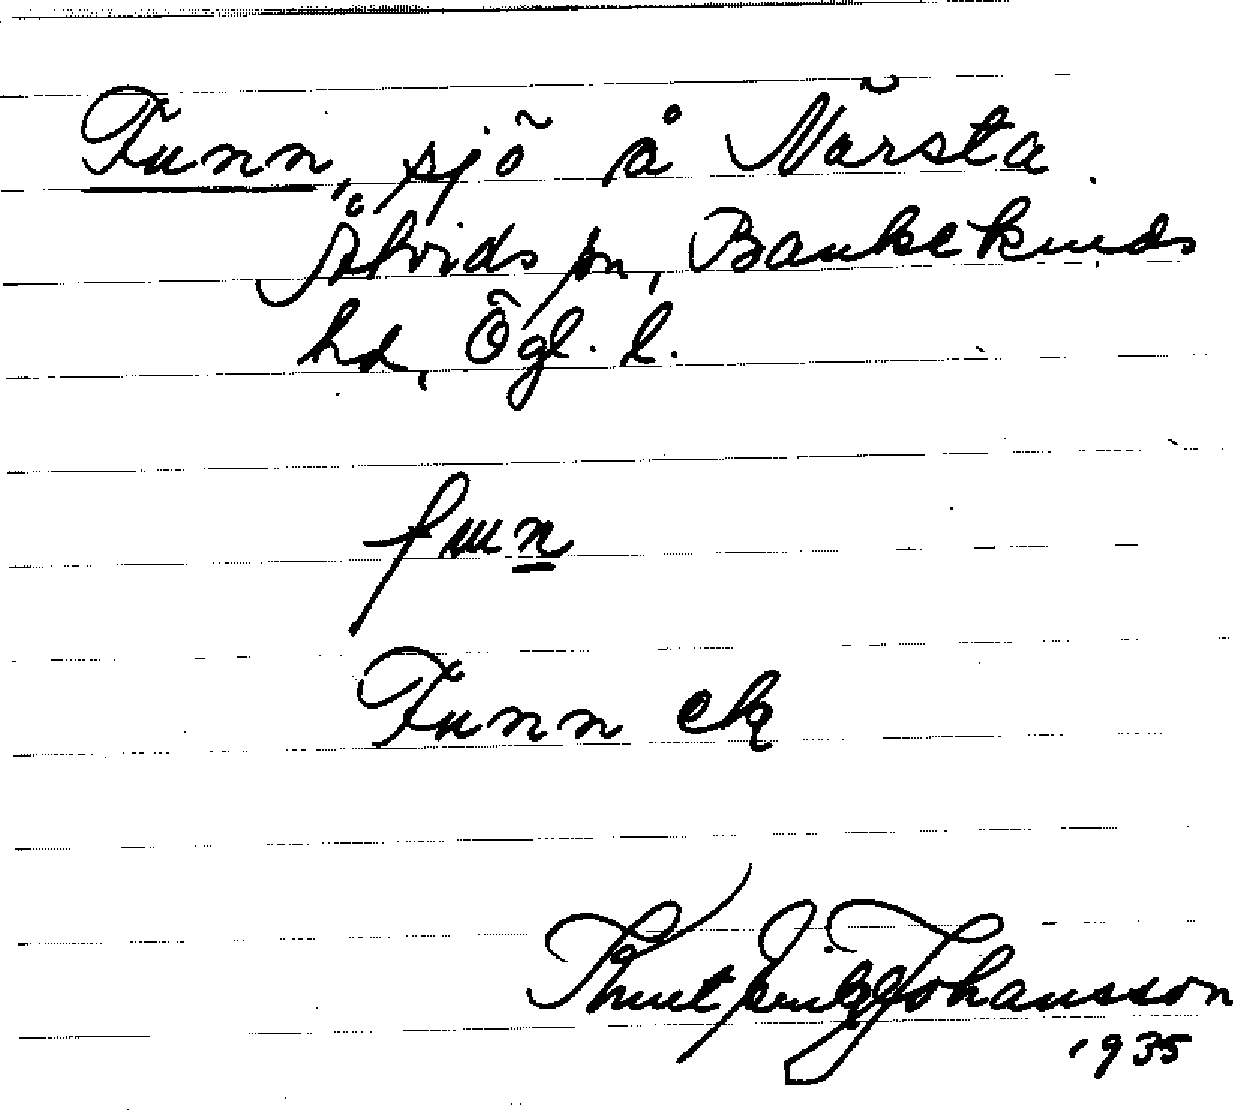 Funn, sjö å Närsta
Åtvids sn, Bankekinds
hd, Ögl. l.
fun
Funn ek
Knut Johansson
1935